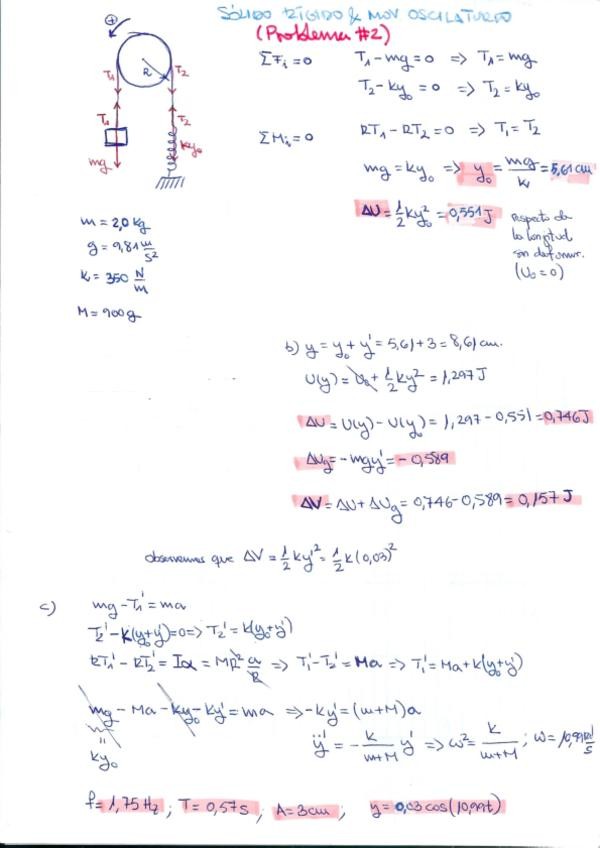 SÓLIDO RÍGIDO & MOV OSCILATORIO
(Problema #2)
+
R
T₁ T₂
T₁ T₂
mg ky₀
ΣFᵢ=0 T₁-mg=0 => T₁=mg
T₂-ky₀=0 => T₂=ky₀
ΣMᵢ=0 RT₁-RT₂=0 => T₁=T₂
mg=ky₀ => y₀=mg/k=5,61 cm
ΔU=½ky₀²=0,551J
respecto de
la longitud
sin deformar.
(U₀=0)
m=2,0 kg
g=9,81 m/s²
k=350 N/m
M=900g
b) y=y₀+y'=5,61+3=8,61 cm.
U(y)=U₀+½ky²=1,297J
ΔU=U(y)-U(y₀)=1,297-0,551=0,746J
ΔUg=-mgy'=-0,589
ΔV=ΔU+ΔUg=0,746-0,589=0,157 J
observemos que ΔV=½ky'²=½k(0,03)²
c) mg-T₁'=ma
T₂'-k(y₀+y')=0=> T₂'=k(y₀+y')
RT₁'-RT₂'=Iα=MR²a/R => T₁'-T₂'=Ma => T₁'=Ma+k(y₀+y')
mg-Ma-ky₀-ky'=ma => -ky'=(m+M)a
=
ky₀
ÿ'=-k/(m+M) y' => ω²=k/(m+M); ω=10,99 rad/s
f=1,75Hz; T=0,57s; A=3cm; y=0,03cos(10,99t)